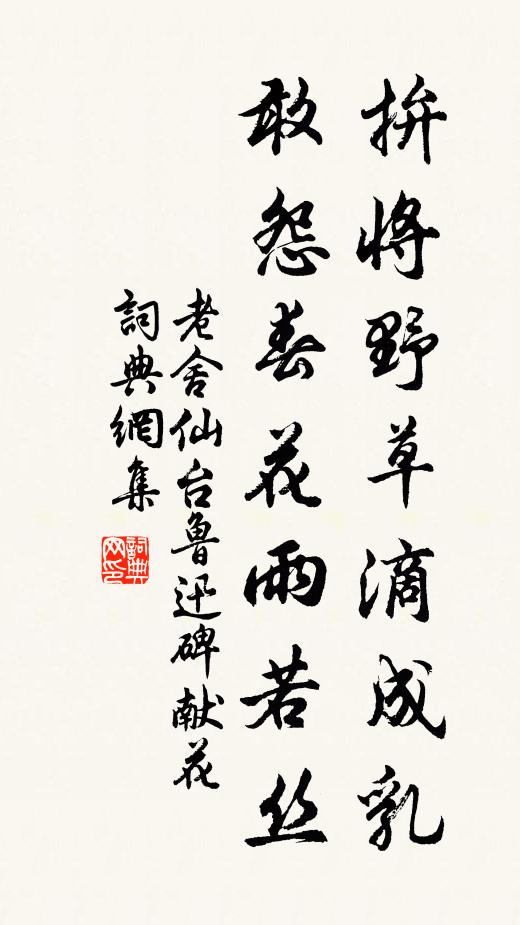 拚將野草滴成乳
敢怨春花雨若丝
老舍仙台魯迅碑献花
詞典網集
詞典网印